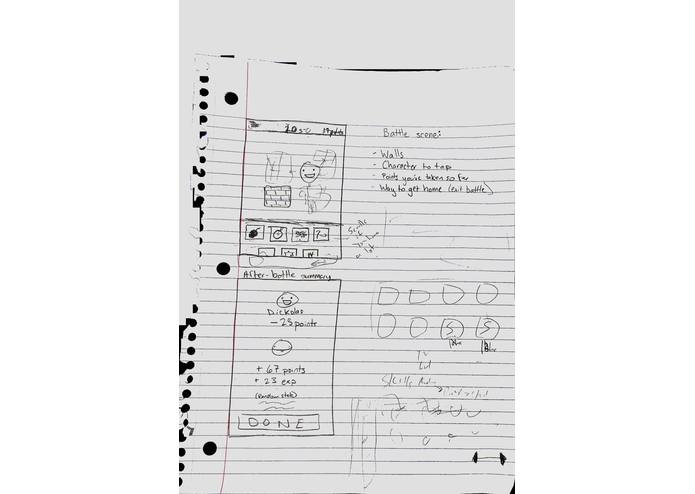 20 sec
Battle scene:
- Walls
- Character to tap
- Points you've taken so far
- Way to get home (exit battle)
After-battle summary
Dickolas
- 25 points
+ 67 points
+ 23 exp
(Random stats)
DONE
S
S
Skills